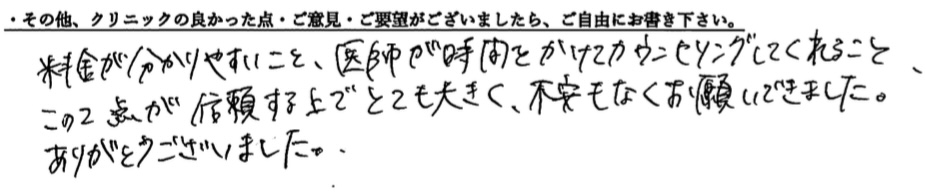 ・その他、クリニックの良かった点・ご意見・ご要望がございましたら、ご自由にお書き下さい。
料金が分かりやすいこと、医師が時間をかけてカウンセリングしてくれること、
この2点が信頼する上でとても大きく、不安もなくお願いできました。
ありがとうございました。